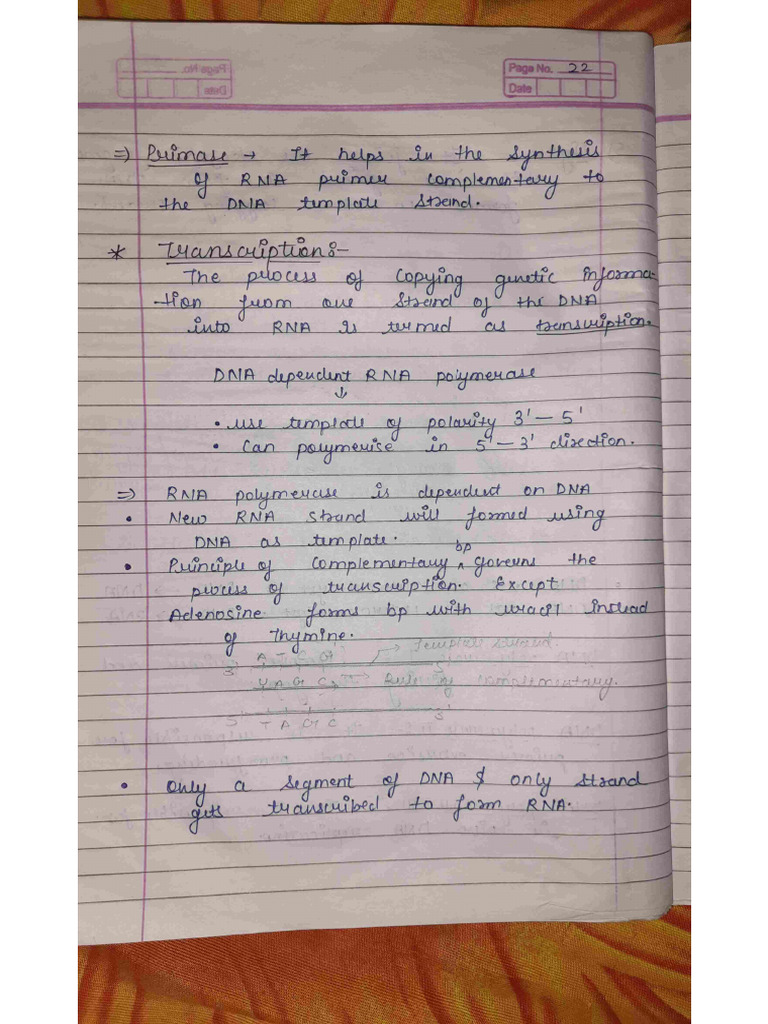 Page No. 22
Date
⇒ Primase → It helps in the synthesis
of RNA primer complementary to
the DNA template strand.
* Transcription:-
The process of copying genetic informa-
tion from one strand of the DNA
into RNA is termed as transcription.
DNA dependent RNA polymerase
↓
• use template of polarity 3' – 5'
• Can polymerise in 5' – 3' direction.
⇒ RNA polymerase is dependent on DNA
• New RNA strand will formed using
DNA as template.
bp
• Principle of complementary ^ governs the
process of transcription. Except
Adenosine forms bp with uracil instead
of Thymine.
A T C G → Template strand.
3' 5'
U A G C → Rule of complementary.
5' 3'
T A G C
• Only a segment of DNA & only strand
gets transcribed to form RNA.